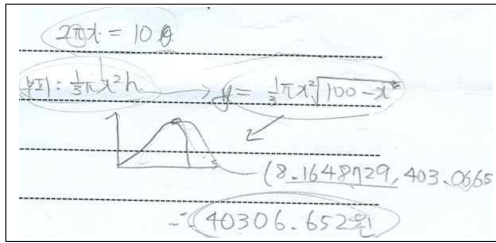 2πx = 10θ
부피: ⅓πx²h → y = ⅓πx²√100-x²
(8.1648729, 403.0665
∴ 40306.652원